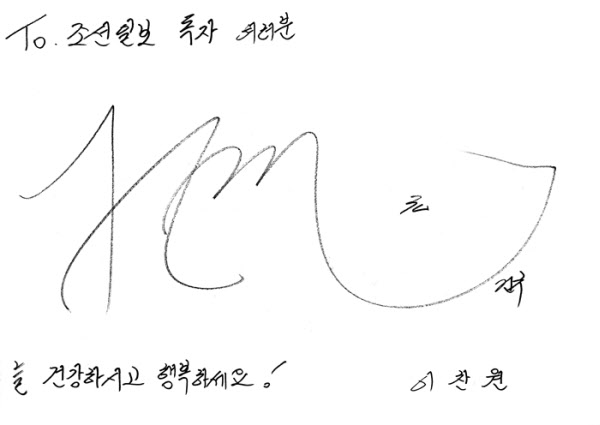 To. 조선일보 독자 여러분
늘 건강하시고 행복하세요!
이찬원